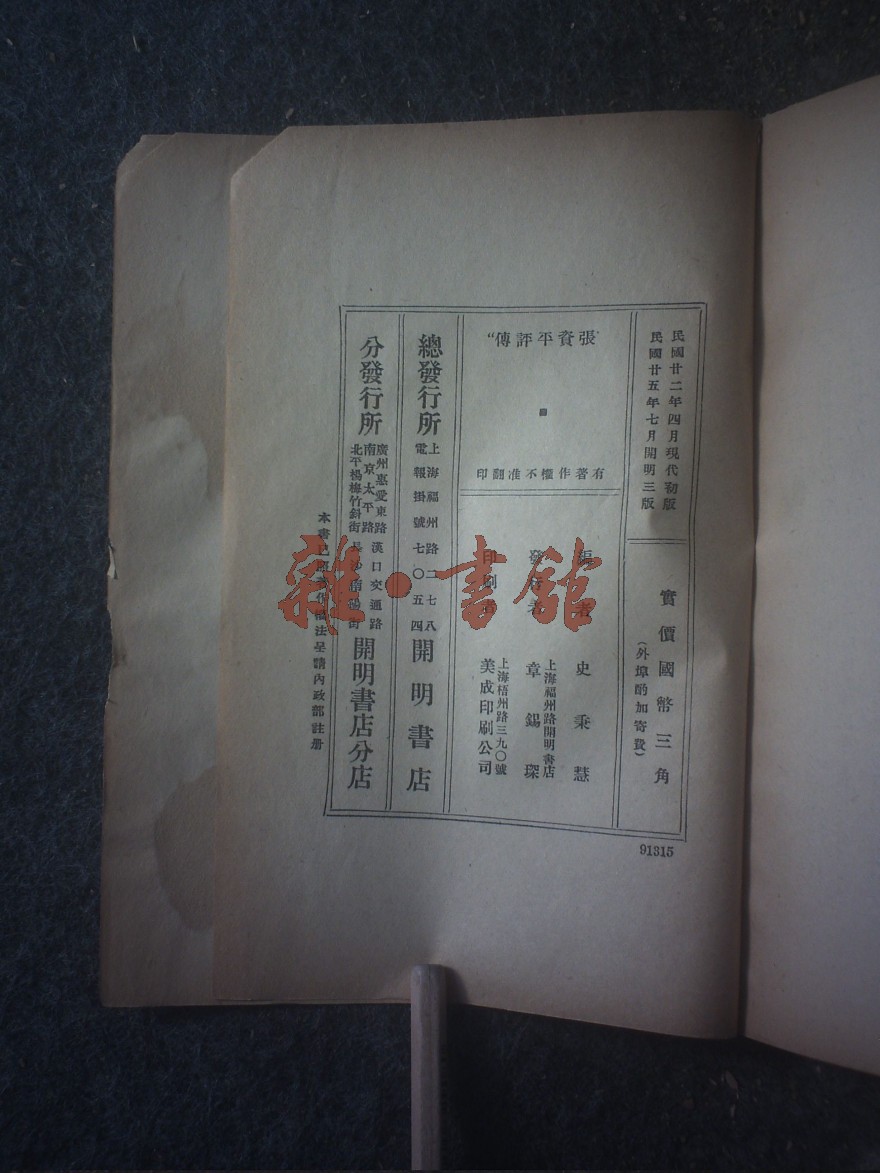 民國廿二年四月現代初版
民國廿五年七月開明三版
實價國幣三角
(外埠酌加寄費)
"張資平評傳"
有著作權不准翻印
編者 史秉慧
發行者 上海福州路開明書店
章錫琛
印刷者 上海梧州路三九〇號
美成印刷公司
總發行所 上海福州路二七八
電報掛號七〇五四
開明書店
分發行所 廣州惠愛東路 漢口交通路
南京太平路
北平楊梅竹斜街 長沙南陽街
開明書店分店
本書已照著作權法呈請內政部註册
91315
雜·書館